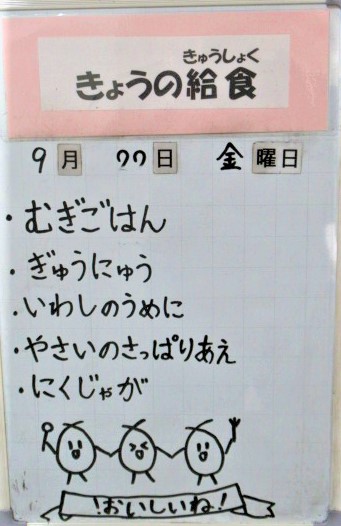 きゅうしょく
きょうの給食
9月 77日 金曜日
・むぎごはん
・ぎゅうにゅう
・いわしのうめに
・やさいのさっぱりあえ
・にくじゃが
!おいしいね!